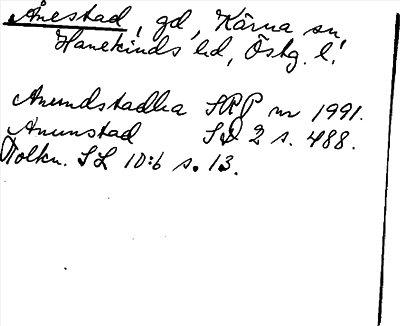 Ånestad, gd, Kärna sn
Hanekinds hd, Östg. l.
Anundstadha SRP nr 1991.
Anunstad SD 2 s. 488.
Tolkn. SL 10:6 s. 13.